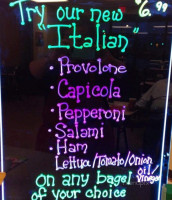 Try our new $6.99
"Italian"
• Provolone
• Capicola
• Pepperoni
• Salami
• Ham
Lettuce/Tomato/Onion
oil
on any bagel Vinegar
of your choice